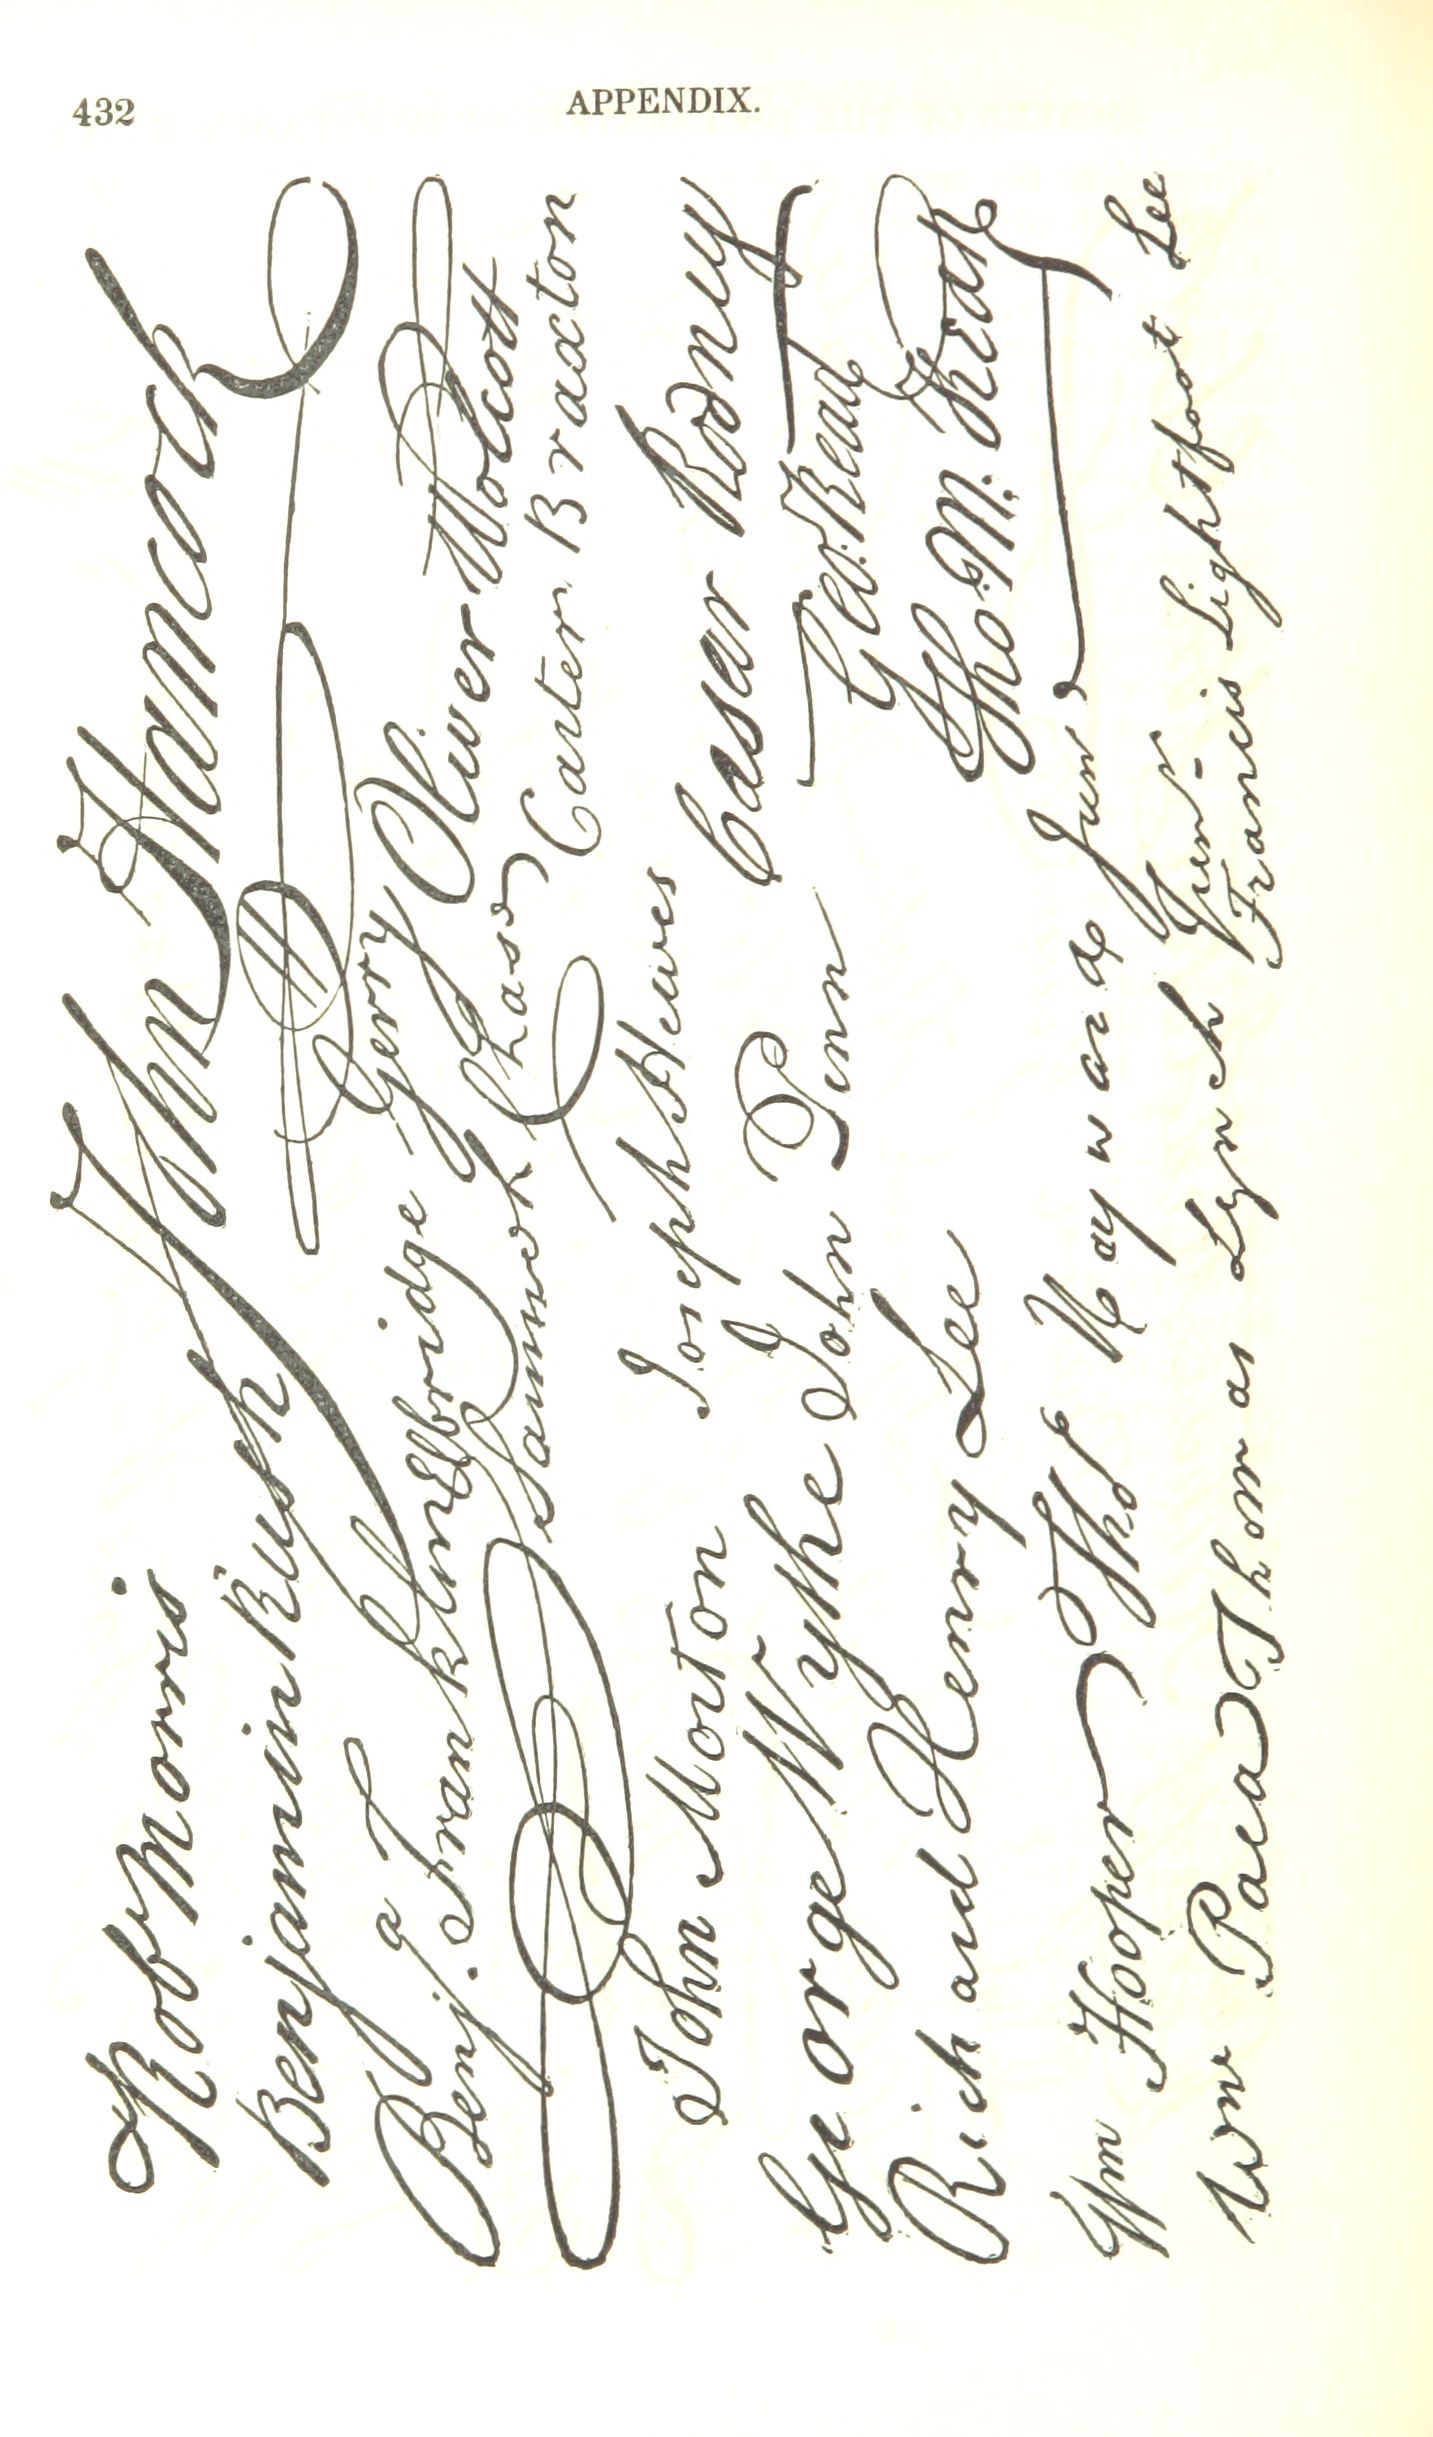 432
APPENDIX.
Robt Morris
John Hancock
Benjamin Rush
Benja. Franklin
Elbridge Gerry
Oliver Wolcott
Samuel Chase
Carter Braxton
John Morton
Joseph Hewes
Caesar Rodney
George Wythe
John Penn
Geo. Read
Richard Henry Lee
Tho M:
Wm Hooper
Thos Hayward Junr
Wm Paca
Thomas Lynch Junr
Francis Lightfoot Lee